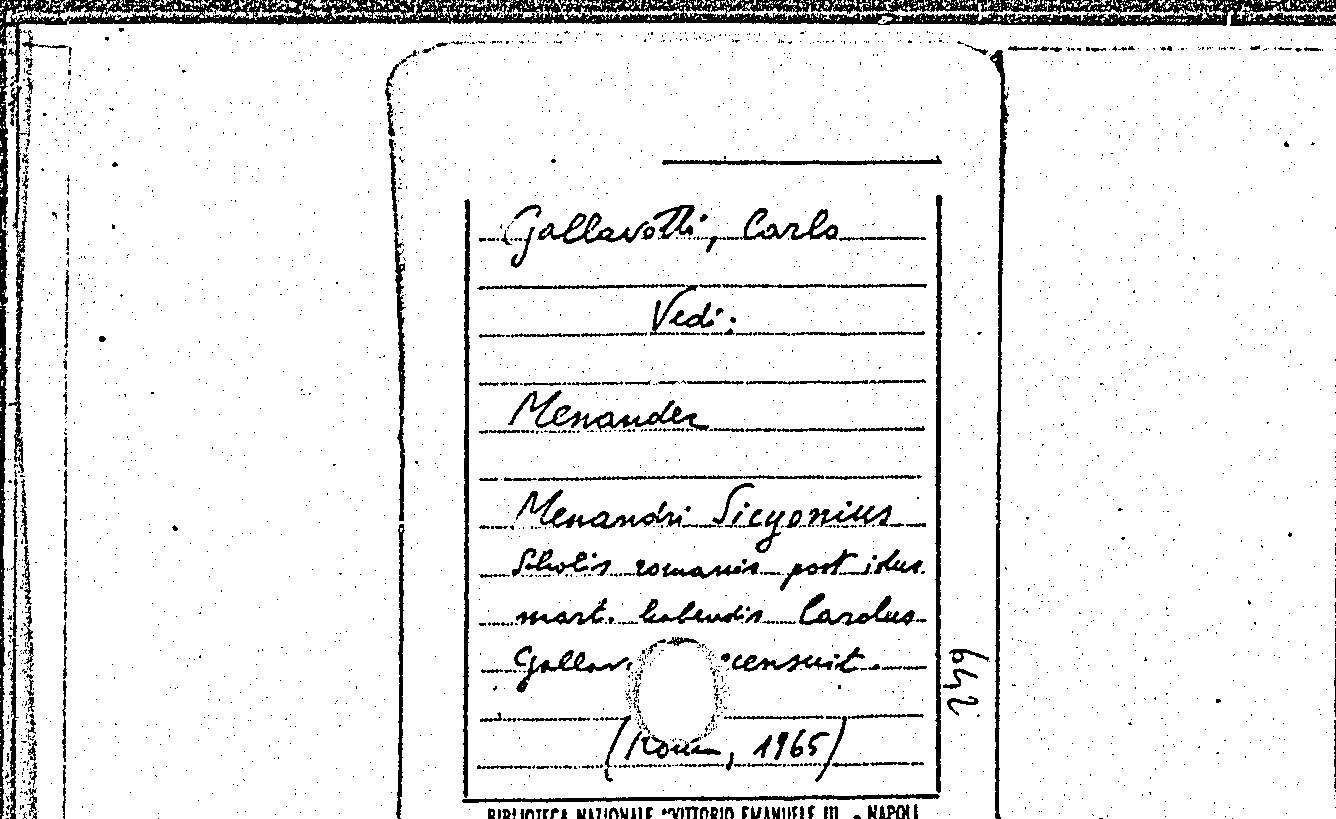 Gallavotti, Carlo
Vedi:
Menander
Menandri Sicyonius
Scholis romanis post idus
mart. habendis Carolus
Gallav. censuit.
(Roma, 1965)
642
BIBLIOTECA NAZIONALE "VITTORIO EMANUELE III" - NAPOLI